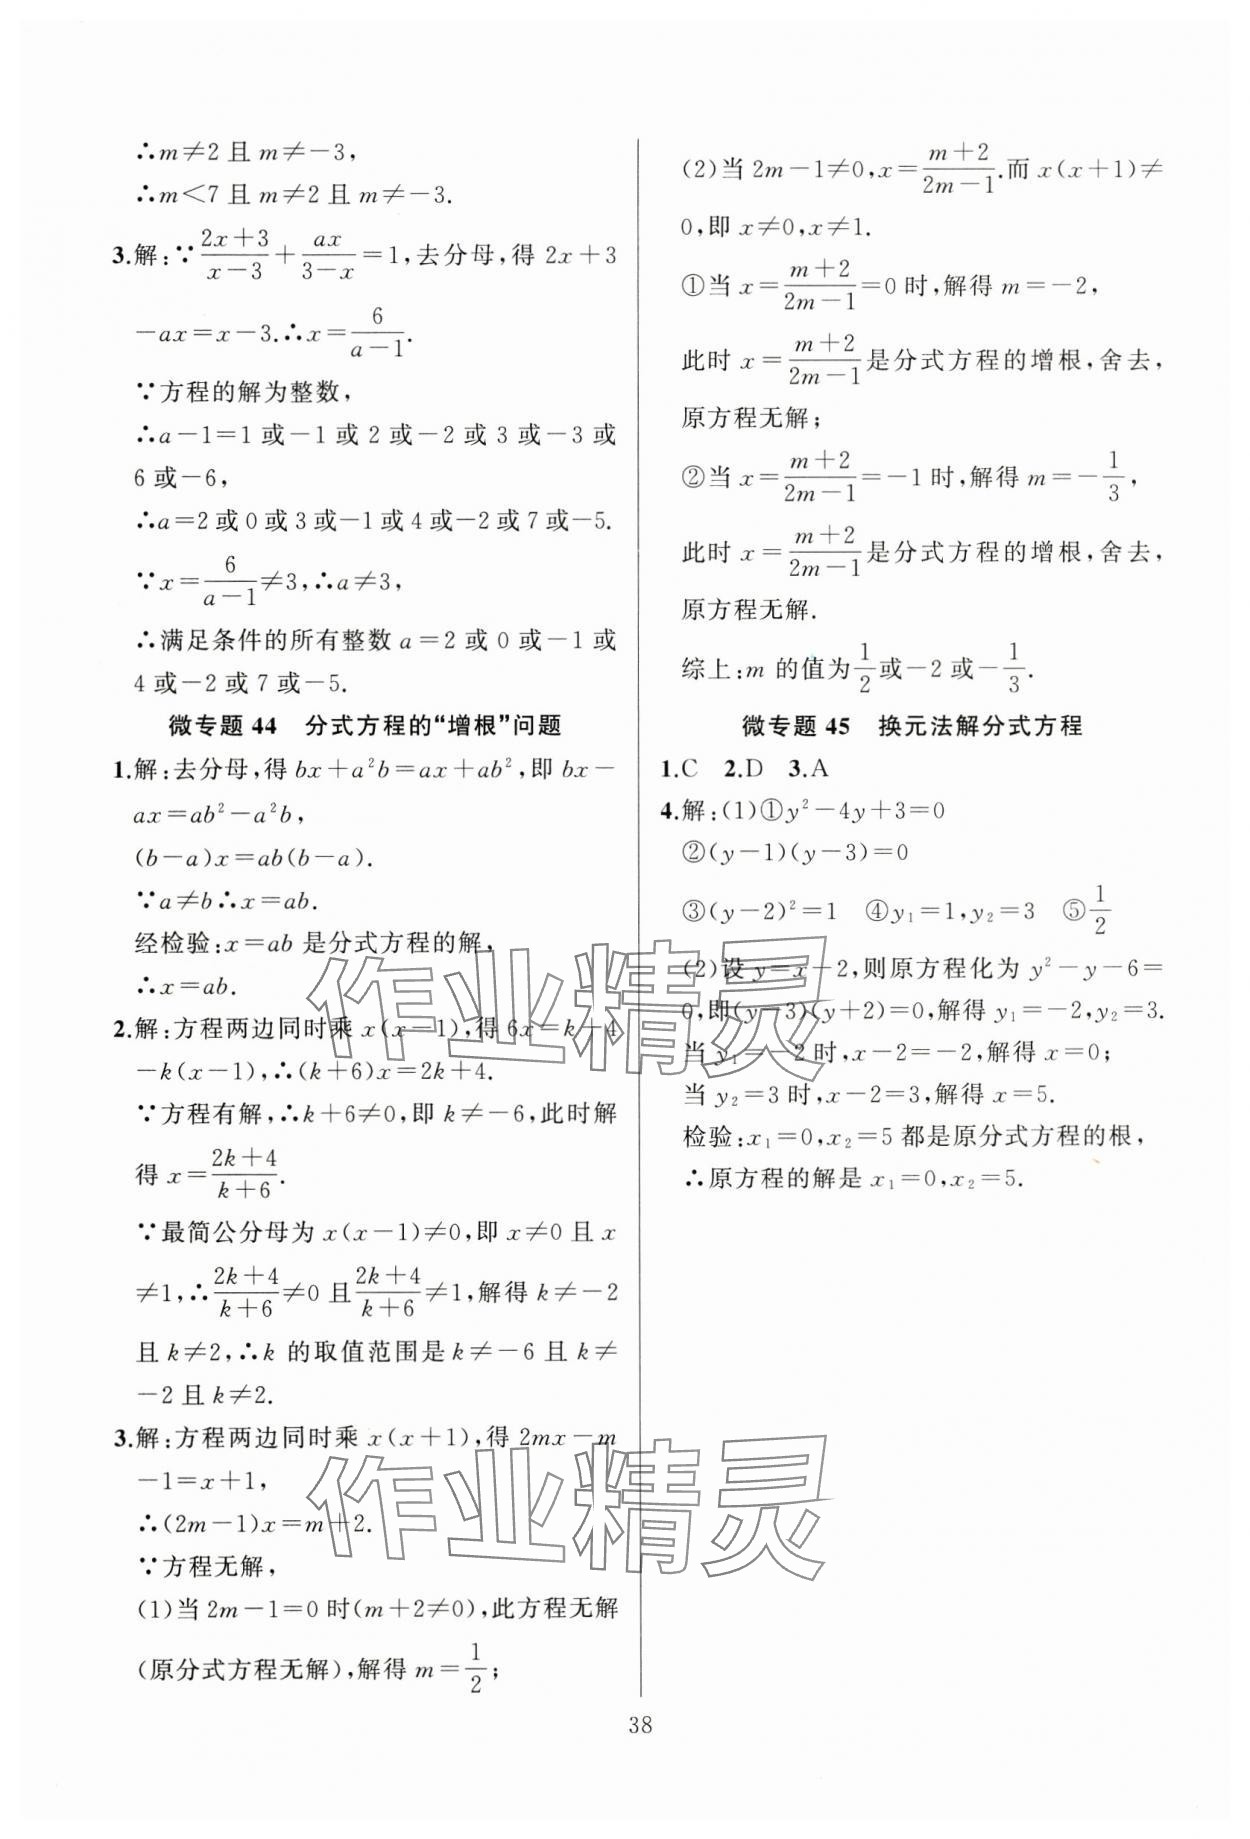 ∴m≠2 且 m≠－3,
∴m＜7 且 m≠2 且 m≠－3.
3.解:∵$\frac{2x+3}{x-3}+\frac{ax}{3-x}$=1,去分母,得 2x＋3
－ax＝x－3.∴x＝$\frac{6}{a-1}$.
∵方程的解为整数,
∴a－1＝1 或－1 或 2 或－2 或 3 或－3 或
6 或－6,
∴a＝2 或 0 或 3 或－1 或 4 或－2 或 7 或－5.
∵x＝$\frac{6}{a-1}$≠3,∴a≠3,
∴满足条件的所有整数 a＝2 或 0 或－1 或
4 或－2 或 7 或－5.
微专题 44 分式方程的“增根”问题
1.解:去分母,得 bx＋a²b＝ax＋ab²,即 bx－
ax＝ab²－a²b,
(b－a)x＝ab(b－a).
∵a≠b∴x＝ab.
经检验:x＝ab 是分式方程的解,
∴x＝ab.
2.解:方程两边同时乘 x(x－1),得 6x＝k＋4
－k(x－1),∴(k＋6)x＝2k＋4.
∵方程有解,∴k＋6≠0,即 k≠－6,此时解
得 x＝$\frac{2k+4}{k+6}$.
∵最简公分母为 x(x－1)≠0,即 x≠0 且 x
≠1,∴$\frac{2k+4}{k+6}$≠0 且$\frac{2k+4}{k+6}$≠1,解得 k≠－2
且 k≠2,∴k 的取值范围是 k≠－6 且 k≠
－2 且 k≠2.
3.解:方程两边同时乘 x(x＋1),得 2mx－m
－1＝x＋1,
∴(2m－1)x＝m＋2.
∵方程无解,
(1)当 2m－1＝0 时(m＋2≠0),此方程无解
(原分式方程无解),解得 m＝$\frac{1}{2}$;
(2)当 2m－1≠0,x＝$\frac{m+2}{2m-1}$.而 x(x＋1)≠
0,即 x≠0,x≠1.
①当 x＝$\frac{m+2}{2m-1}$＝0 时,解得 m＝－2,
此时 x＝$\frac{m+2}{2m-1}$是分式方程的增根,舍去,
原方程无解;
②当 x＝$\frac{m+2}{2m-1}$＝－1 时,解得 m＝－$\frac{1}{3}$,
此时 x＝$\frac{m+2}{2m-1}$是分式方程的增根,舍去,
原方程无解.
综上:m 的值为$\frac{1}{2}$或－2 或－$\frac{1}{3}$.
微专题 45 换元法解分式方程
1.C 2.D 3.A
4.解:(1)①y²－4y＋3＝0
②(y－1)(y－3)＝0
③(y－2)²＝1 ④y₁＝1,y₂＝3 ⑤$\frac{1}{2}$
(2)设 y＝x－2,则原方程化为 y²－y－6＝
0,即(y－3)(y＋2)＝0,解得 y₁＝－2,y₂＝3.
当 y₁＝－2 时,x－2＝－2,解得 x＝0;
当 y₂＝3 时,x－2＝3,解得 x＝5.
检验:x₁＝0,x₂＝5 都是原分式方程的根,
∴原方程的解是 x₁＝0,x₂＝5.
作业精灵
作业精灵
38